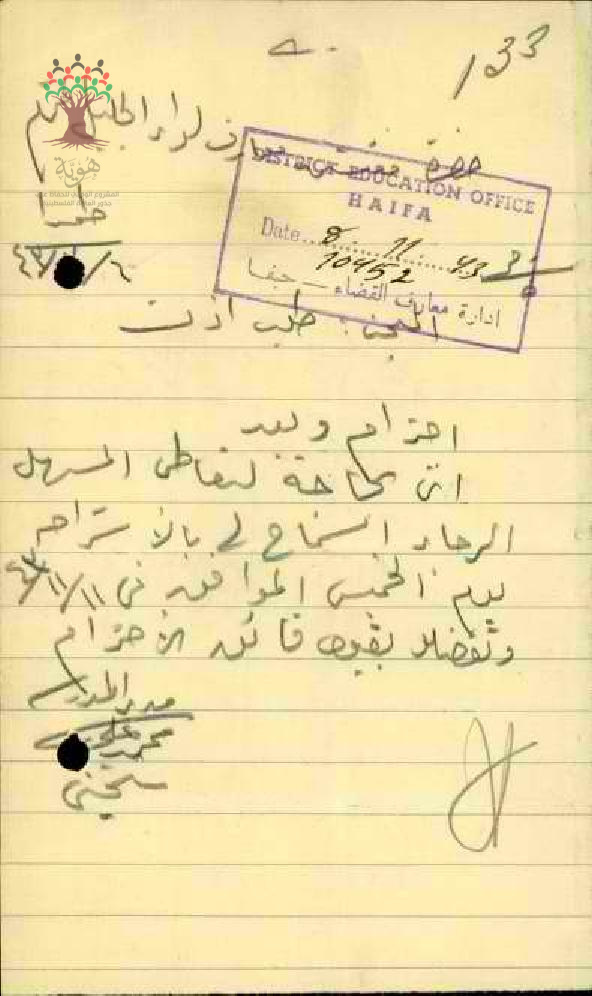 133
هوية
حضرة مفتش معارف لواء الجليل
حيفا
DISTRICT EDUCATION OFFICE
HAIFA
Date 8 11 43
10452
ادارة معارف القضاء — حيفا
طلب اذن
احترام وبعد
انى بحاجة لتعاطى المسهل
الرجاء السماح لي بالاستراحة
يوم الخميس الموافق فى ١١/١١/٤٣
وتفضلوا بقبول فائق الاحترام
مدير المدرسة
محمد
سخنين